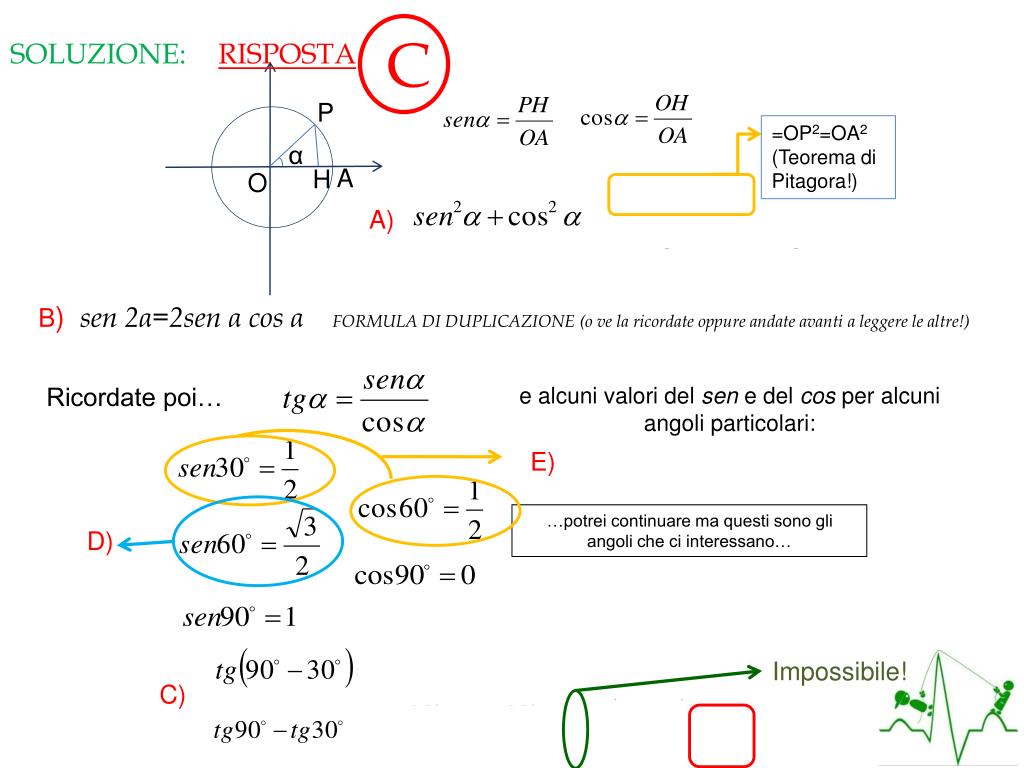 SOLUZIONE: RISPOSTA C
P
α
O H A
senα = PH/OA cosα = OH/OA
=OP²=OA²
(Teorema di
Pitagora!)
A) sen²α + cos²α
B) sen 2a=2sen a cos a FORMULA DI DUPLICAZIONE (o ve la ricordate oppure andate avanti a leggere le altre!)
Ricordate poi… tgα = senα/cosα
e alcuni valori del sen e del cos per alcuni
angoli particolari:
sen30° = 1/2
E)
cos60° = 1/2
D) sen60° = √3/2
…potrei continuare ma questi sono gli
angoli che ci interessano…
cos90° = 0
sen90° = 1
C)
tg(90° − 30°)
tg90° − tg30°
Impossibile!